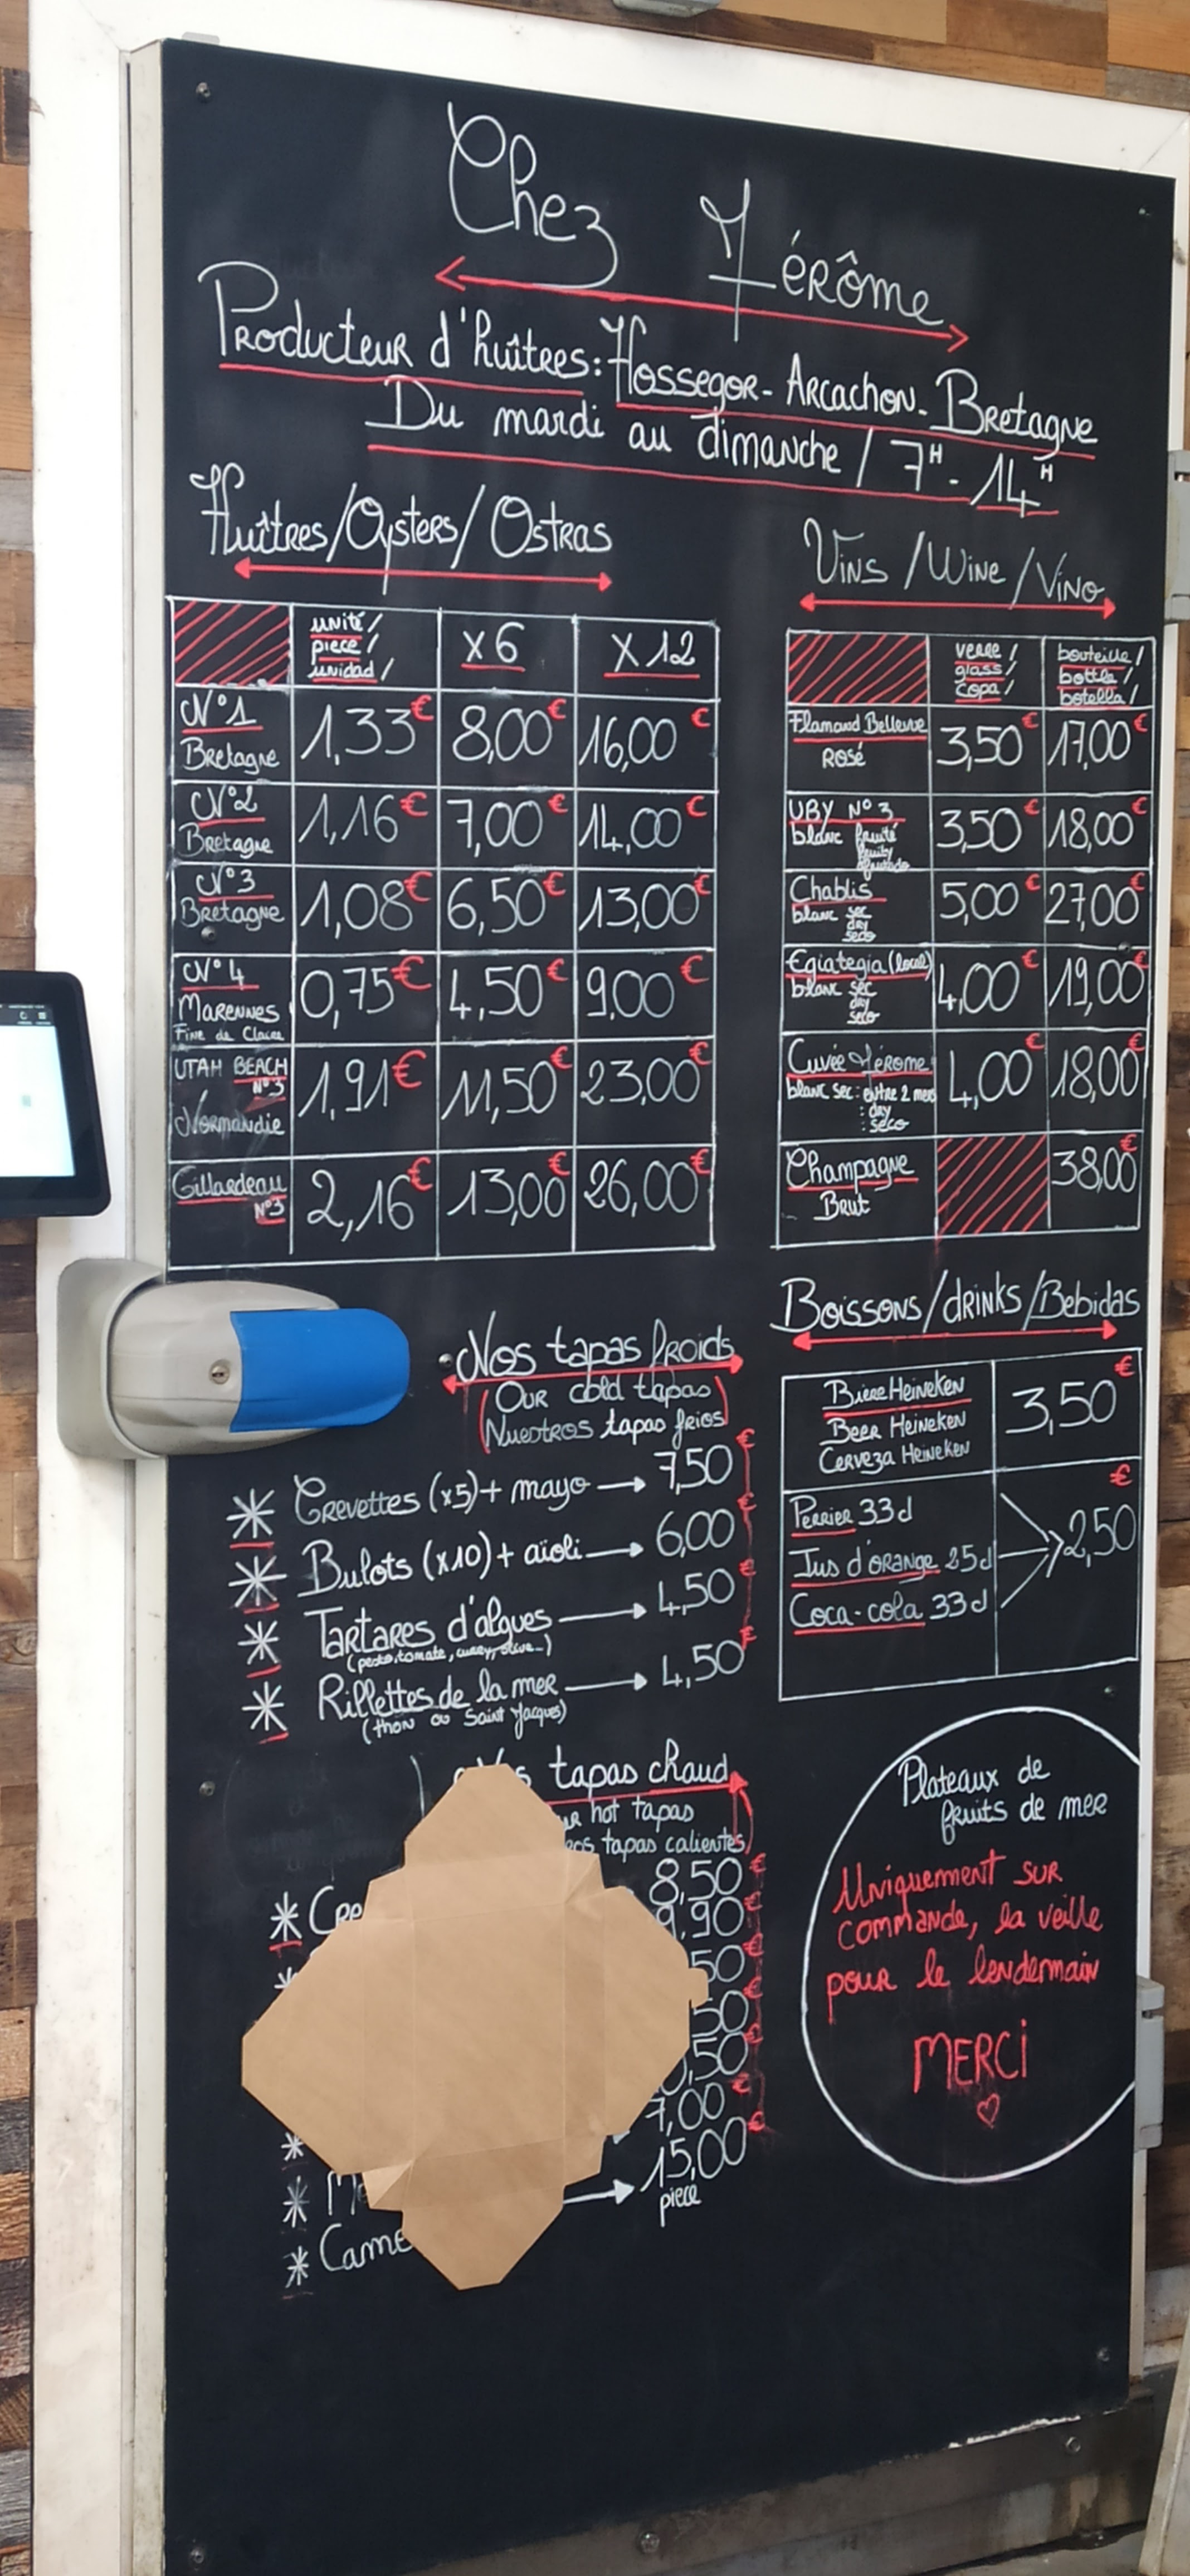 Chez Jérôme
Producteur d'huîtres: Hossegor - Arcachon - Bretagne
Du mardi au dimanche / 7H - 14H
Huîtres/Oysters/Ostras
unité/ piece/ unidad/ x6 x12
N°1 Bretagne 1,33€ 8,00€ 16,00€
N°2 Bretagne 1,16€ 7,00€ 14,00€
N°3 Bretagne 1,08€ 6,50€ 13,00€
N°4 Marennes Fine de Claire 0,75€ 4,50€ 9,00€
UTAH BEACH N°3 Normandie 1,91€ 11,50€ 23,00€
Gillardeau N°3 2,16€ 13,00€ 26,00€
Vins/Wine/Vino
verre/ glass/ copa/ bouteille/ bottle/ botella/
Flamand Bellevue Rosé 3,50€ 17,00€
UBY N°3 blanc fruité fruity afrutado 3,50€ 18,00€
Chablis blanc sec dry seco 5,00€ 27,00€
Egiategia (local) blanc sec dry seco 4,00€ 19,00€
Cuvée Jérome blanc sec: entre 2 mers : dry : seco 4,00€ 18,00€
Champagne Brut 38,00€
Nos tapas froids
(Our cold tapas)
(Nuestros tapas frios)
* Crevettes (x5) + mayo → 7,50€
* Bulots (x10) + aïoli → 6,00€
* Tartares d'algues → 4,50€
(pesto, tomate, curry, olive...)
* Rillettes de la mer → 4,50€
(thon ou Saint Jacques)
Boissons/drinks/Bebidas
Biere Heineken
Beer Heineken
Cerveza Heineken
3,50€
Perrier 33cl
Jus d'orange 25cl
Coca-cola 33cl
2,50€
tapas chaud
hot tapas
tapas calientes
8,50€
9,90€
50€
50€
,50€
7,00€
15,00€
piece
Plateaux de
fruits de mer
Uniquement sur
commande, la veille
pour le lendemain
MERCI
♡